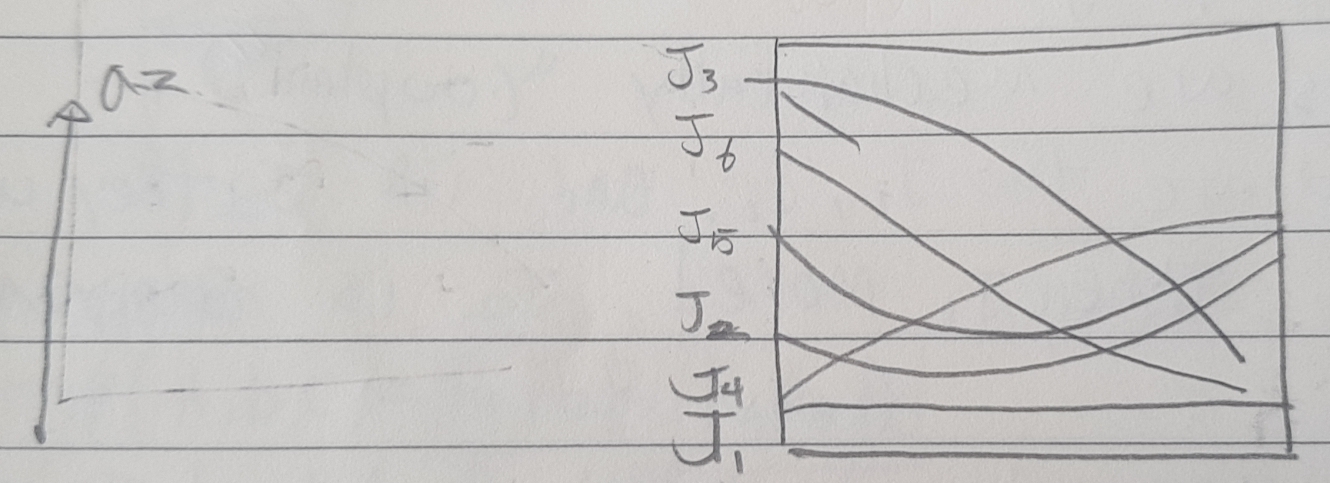 az
J3
J6
J5
J2
J4
J1